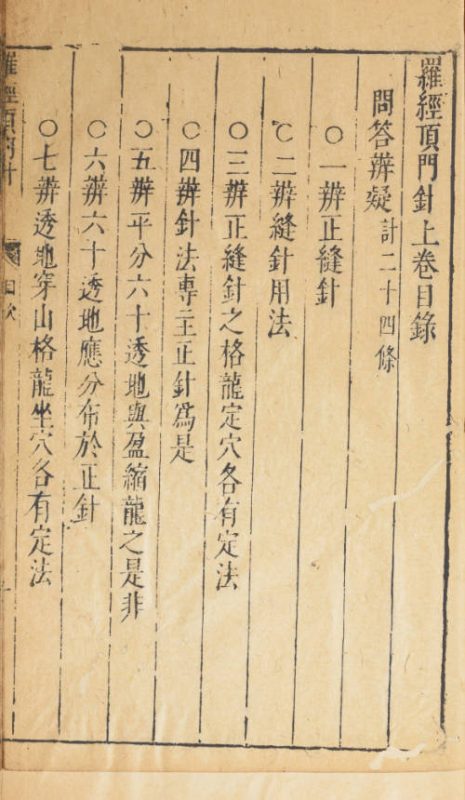 羅經頂門針上卷目錄
問答辨疑 計二十四條
○一辨正縫針
○二辨縫針用法
○三辨正縫針之格龍定穴各有定法
○四辨針法專主正針爲是
○五辨平分六十透地與盈縮龍之是非
○六辨六十透地應分布於正針
○七辨透地穿山格龍坐穴各有定法
羅經頂門針 目次